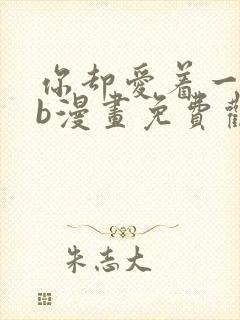 你却愛着一
b漫畫免費
朱志大